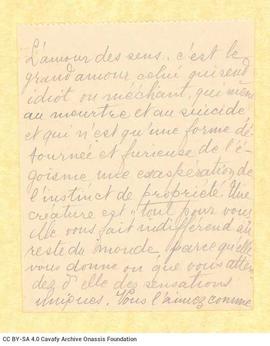 L'amour des sens, c'est le
grand amour celui qui rend
idiot ou méchant, qui mène
au meurtre et au suicide
et qui n'est qu'une forme dé-
tournée et furieuse de l'é-
goïsme une exaspération de
l'instinct de propriété. Une
créature est "tout pour vous"
Elle vous fait indifférend au
reste du monde parce qu'elle
vous donne ou que vous atten-
dez d'elle des sensations
uniques. Vous l'aimez comme
CC BY-SA 4.0 Cavafy Archive Onassis Foundation